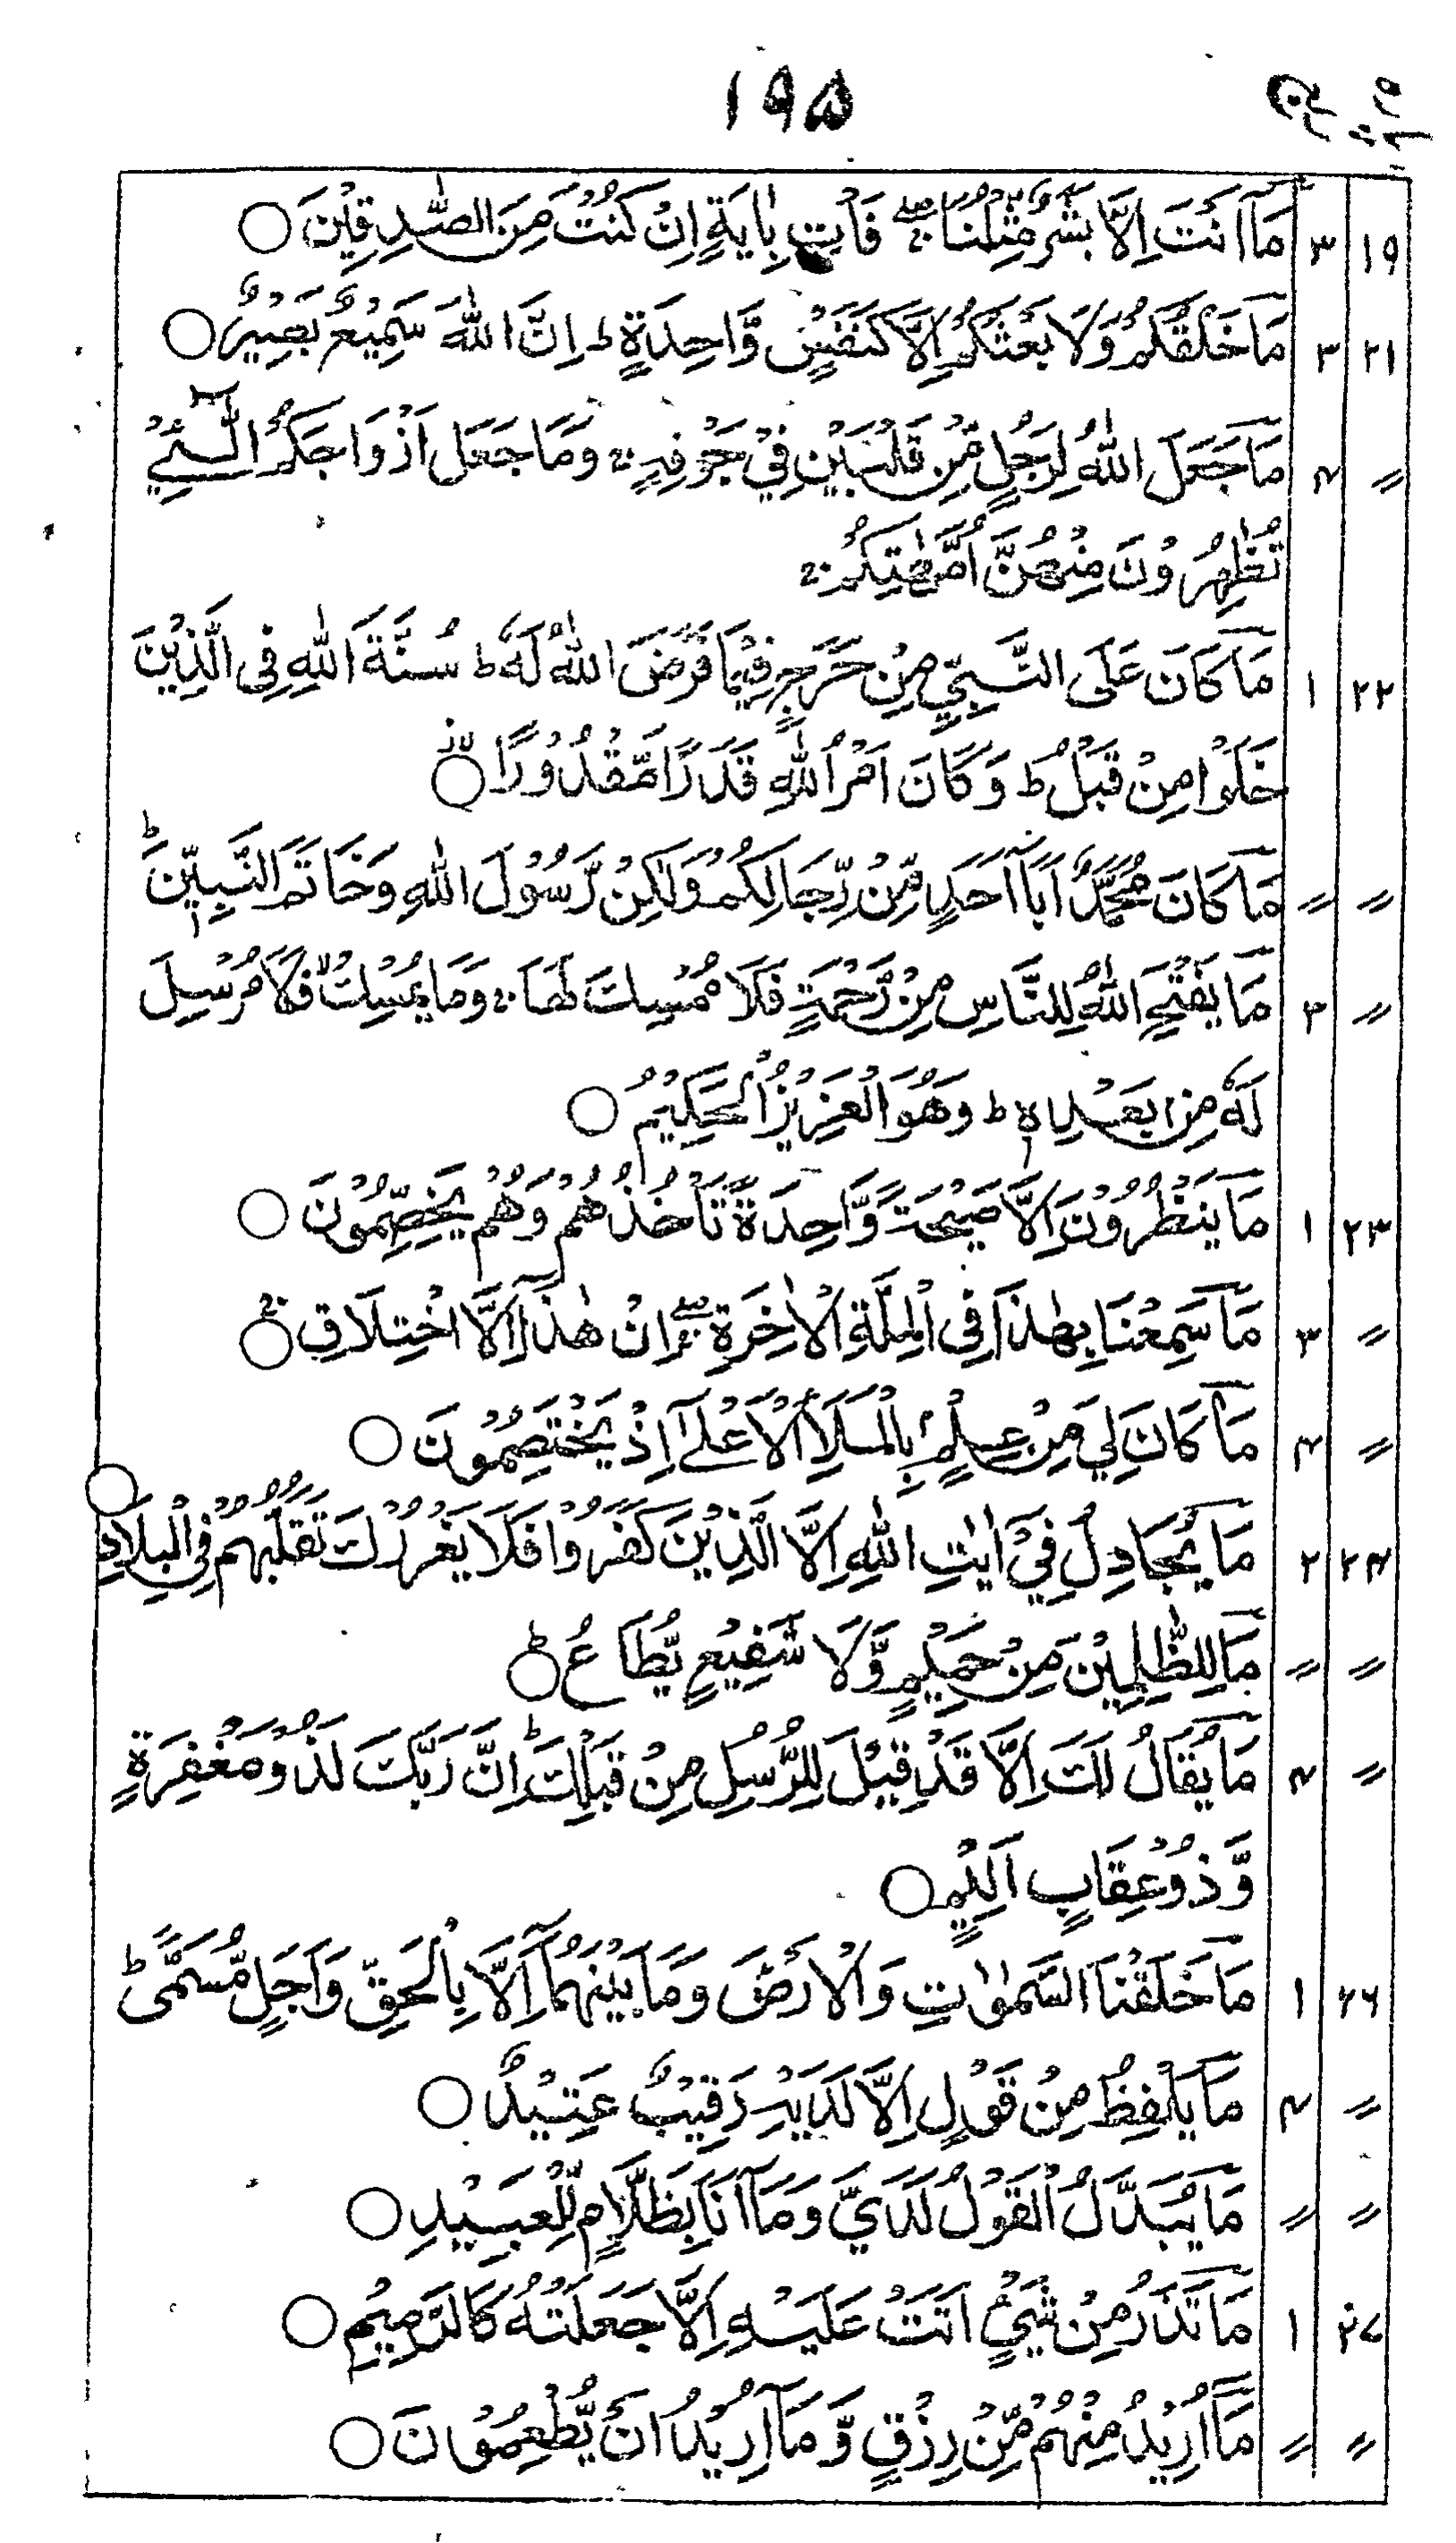 ۱۹۵
۱۹ ۳ مَاۤ اَنْتَ اِلَّا بَشَرٌ مِّثْلُنَا ۖۚ فَاْتِ بِاٰيَةٍ اِنْ كُنْتَ مِنَ الصّٰدِقِيْنَ ○
۲۱ ۳ مَا خَلْقُكُمْ وَلَا بَعْثُكُمْ اِلَّا كَنَفْسٍ وَّاحِدَةٍ ط اِنَّ اللّٰهَ سَمِيْعٌۢ بَصِيْرٌ ○
〃 ۴ مَا جَعَلَ اللّٰهُ لِرَجُلٍ مِّنْ قَلْبَيْنِ فِيْ جَوْفِهٖ ۚ وَمَا جَعَلَ اَزْوَاجَكُمُ الّٰٓـِٔيْ
تُظٰهِرُوْنَ مِنْهُنَّ اُمَّهٰتِكُمْ ۚ
۲۲ ۱ مَا كَانَ عَلَى النَّبِيِّ مِنْ حَرَجٍ فِيْمَا فَرَضَ اللّٰهُ لَهٗ ط سُنَّةَ اللّٰهِ فِي الَّذِيْنَ
خَلَوْا مِنْ قَبْلُ ط وَكَانَ اَمْرُ اللّٰهِ قَدَرًا مَّقْدُوْرًا ○
〃 〃 مَا كَانَ مُحَمَّدٌ اَبَاۤ اَحَدٍ مِّنْ رِّجَالِكُمْ وَلٰكِنْ رَّسُوْلَ اللّٰهِ وَخَاتَمَ النَّبِيّٖنَ ط
〃 ۳ مَا يَفْتَحِ اللّٰهُ لِلنَّاسِ مِنْ رَّحْمَةٍ فَلَا مُمْسِكَ لَهَا ۚ وَمَا يُمْسِكْ ۙ فَلَا مُرْسِلَ
لَهٗ مِنْۢ بَعْدِهٖ ط وَهُوَ الْعَزِيْزُ الْحَكِيْمُ ○
۲۳ ۱ مَا يَنْظُرُوْنَ اِلَّا صَيْحَةً وَّاحِدَةً تَاْخُذُهُمْ وَهُمْ يَخِصِّمُوْنَ ○
〃 ۳ مَا سَمِعْنَا بِهٰذَا فِي الْمِلَّةِ الْاٰخِرَةِ ۖۚ اِنْ هٰذَاۤ اِلَّا اخْتِلَاقٌ ۚ ○
〃 ۴ مَا كَانَ لِيَ مِنْ عِلْمٍۭ بِالْمَلَاِ الْاَعْلٰۤى اِذْ يَخْتَصِمُوْنَ ○
۲۴ ۲ مَا يُجَادِلُ فِيْۤ اٰيٰتِ اللّٰهِ اِلَّا الَّذِيْنَ كَفَرُوْا فَلَا يَغْرُرْكَ تَقَلُّبُهُمْ فِي الْبِلَادِ ○
〃 〃 مَا لِلظّٰلِمِيْنَ مِنْ حَمِيْمٍ وَّلَا شَفِيْعٍ يُّطَاعُ ط ○
〃 ۴ مَا يُقَالُ لَكَ اِلَّا قَدْ قِيْلَ لِلرُّسُلِ مِنْ قَبْلِكَ ط اِنَّ رَبَّكَ لَذُوْ مَغْفِرَةٍ
وَّذُوْ عِقَابٍ اَلِيْمٍ ○
۲۶ ۱ مَا خَلَقْنَا السَّمٰوٰتِ وَالْاَرْضَ وَمَا بَيْنَهُمَاۤ اِلَّا بِالْحَقِّ وَاَجَلٍ مُّسَمًّى ط
〃 ۴ مَا يَلْفِظُ مِنْ قَوْلٍ اِلَّا لَدَيْهِ رَقِيْبٌ عَتِيْدٌ ○
〃 〃 مَا يُبَدَّلُ الْقَوْلُ لَدَيَّ وَمَاۤ اَنَا بِظَلَّامٍ لِّلْعَبِيْدِ ○
۲۷ ۱ مَا تَذَرُ مِنْ شَيْءٍ اَتَتْ عَلَيْهِ اِلَّا جَعَلَتْهُ كَالرَّمِيْمِ ○
〃 〃 مَاۤ اُرِيْدُ مِنْهُمْ مِّنْ رِّزْقٍ وَّمَاۤ اُرِيْدُ اَنْ يُّطْعِمُوْنِ ○